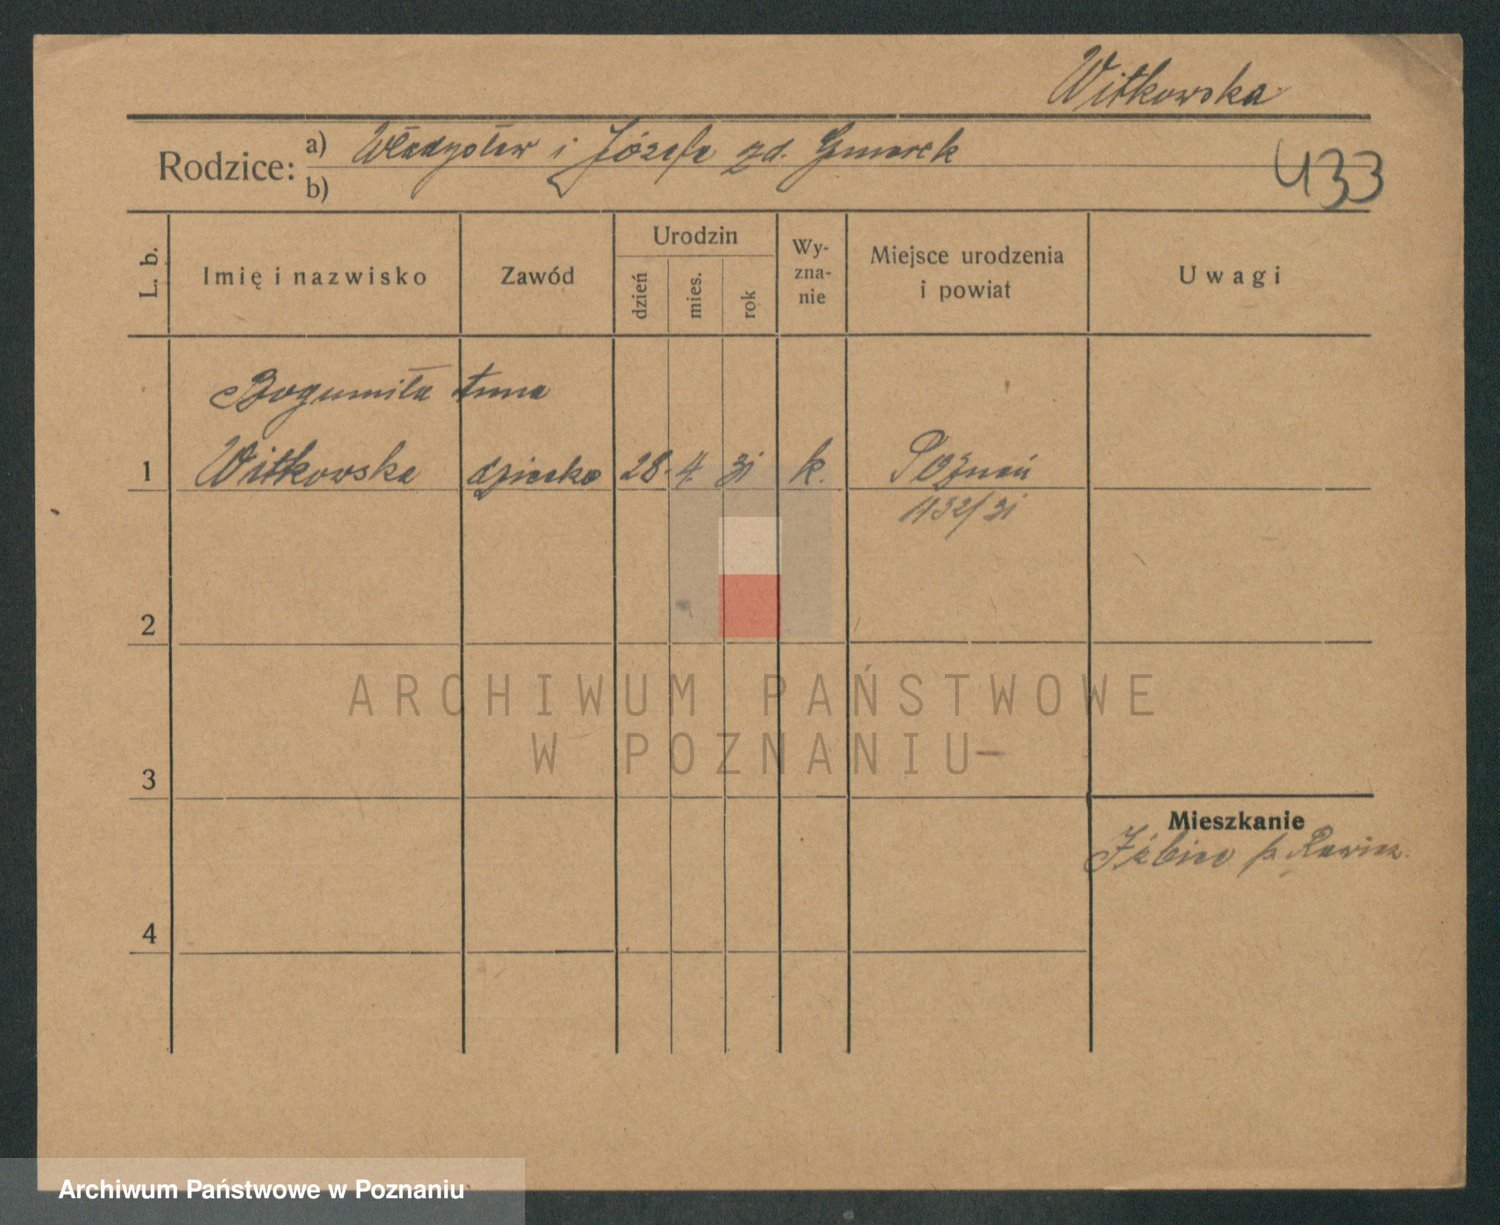 Witkowska
Rodzice: a) Władysław i Józefa zd.
b)
433
L. b.
Imię i nazwisko
Zawód
Urodzin
dzień
mies.
rok
Wy-
zna-
nie
Miejsce urodzenia
i powiat
Uwagi
Bogumiła Anna
1 Witkowska dziecko 28. 4. 31 k. Poznań
1132/31
2
ARCHIWUM PAŃSTWOWE
W POZNANIU
3
Mieszkanie
p. Rawicz.
4
Archiwum Państwowe w Poznaniu